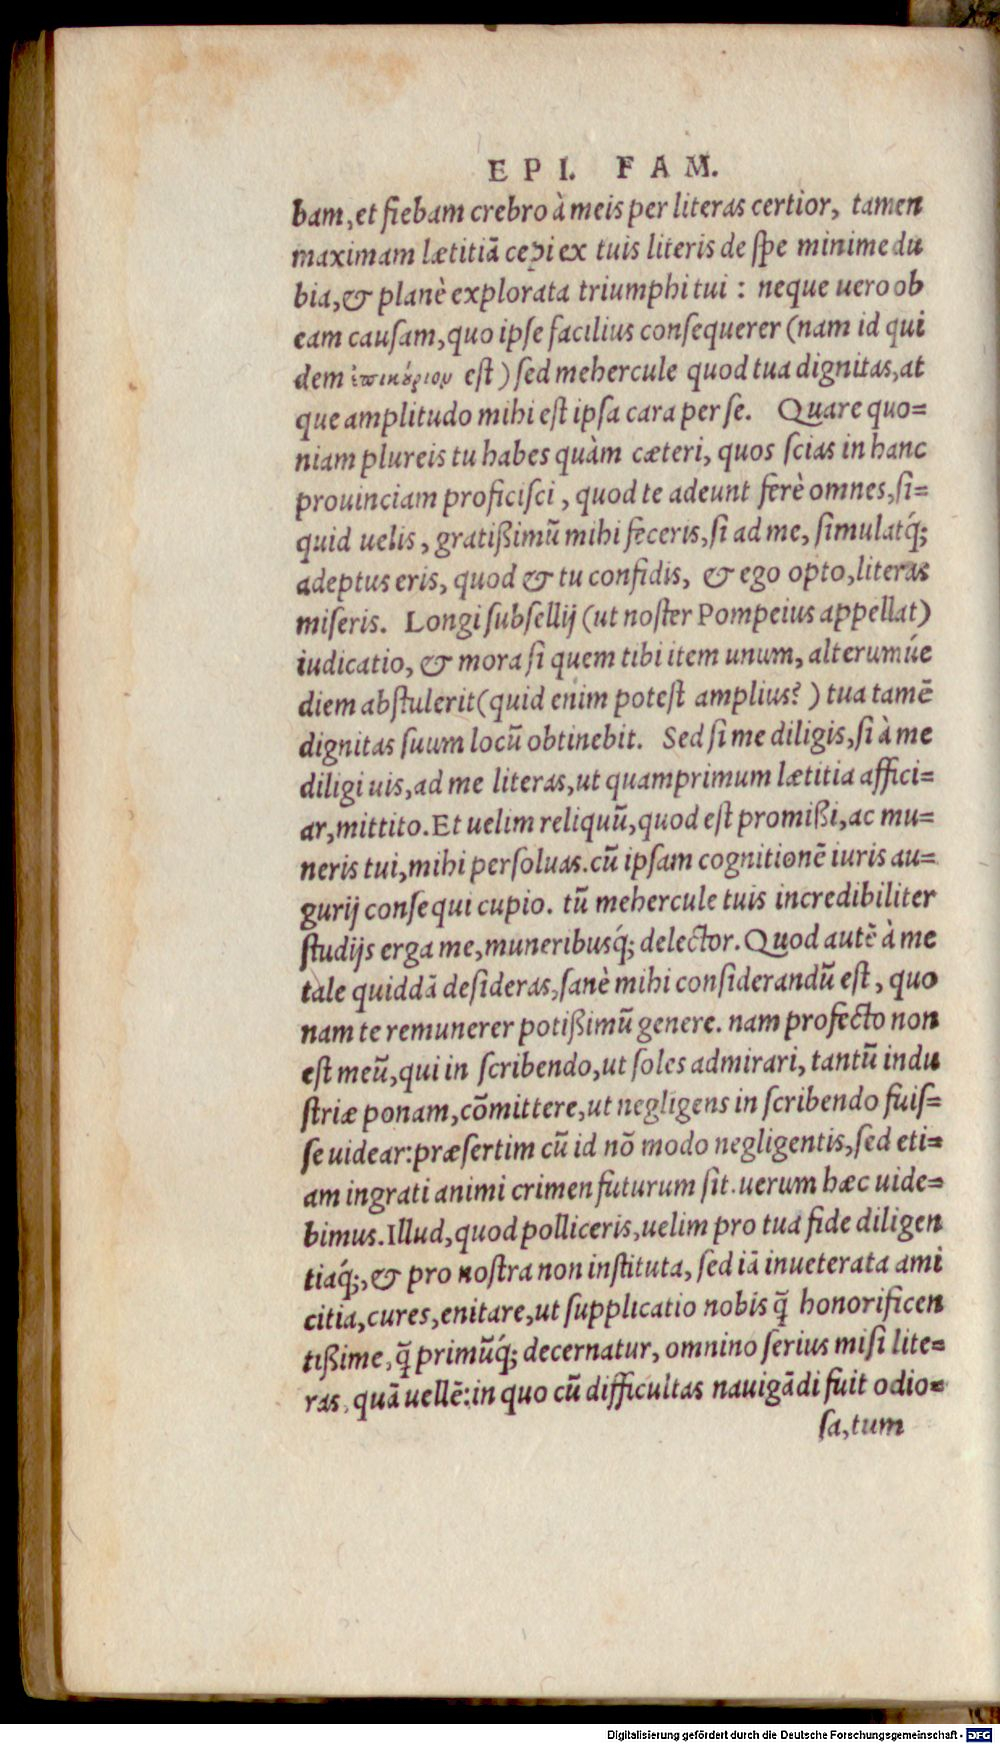 EPI. FAM.
bam, et fiebam crebro à meis per literas certior, tamen
maximam lætitiā cepi ex tuis literis de ſpe minime du
bia, & planè explorata triumphi tui : neque uero ob
eam cauſam, quo ipſe facilius conſequerer (nam id qui
dem ἐπικούριον eſt) ſed mehercule quod tua dignitas, at
que amplitudo mihi eſt ipſa cara per ſe. Quare quo=
niam plureis tu habes quàm cæteri, quos ſcias in hanc
prouinciam proficiſci, quod te adeunt ferè omnes, ſi=
quid uelis, gratißimū mihi feceris, ſi ad me, ſimulatq́;
adeptus eris, quod & tu confidis, & ego opto, literas
miſeris. Longi ſubſellij (ut noſter Pompeius appellat)
iudicatio, & mora ſi quem tibi item unum, alterumúe
diem abſtulerit (quid enim poteſt amplius?) tua tamē
dignitas ſuum locū obtinebit. Sed ſi me diligis, ſi à me
diligi uis, ad me literas, ut quamprimum lætitia affici=
ar, mittito. Et uelim reliquū, quod eſt promißi, ac mu=
neris tui, mihi perſoluas. cū ipſam cognitionē iuris au=
gurij conſequi cupio. tū mehercule tuis incredibiliter
ſtudijs erga me, muneribusq́; delector. Quod autē à me
tale quiddā deſideras, ſanè mihi conſiderandū eſt, quo
nam te remunerer potißimū genere. nam profecto non
eſt meū, qui in ſcribendo, ut ſoles admirari, tantū indu
ſtriæ ponam, cōmittere, ut negligens in ſcribendo fuiſ=
ſe uidear: præſertim cū id nō modo negligentis, ſed eti=
am ingrati animi crimen futurum ſit. uerum hæc uide=
bimus. Illud, quod polliceris, uelim pro tua fide diligen
tiaq́;, & pro noſtra non inſtituta, ſed iā inueterata ami
citia, cures, enitare, ut ſupplicatio nobis q̄̃ honorificen
tißime, q̄̃ primūq́; decernatur, omnino ſerius miſi lite=
ras, quā uellē: in quo cū difficultas nauigādi fuit odio=
ſa, tum
Digitalisierung gefördert durch die Deutsche Forschungsgemeinschaft - DFG